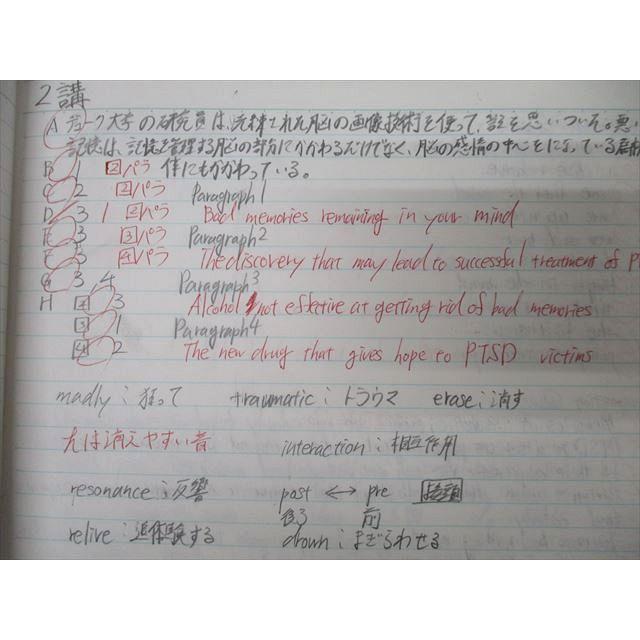 2講
A デューク大学の研究員は、洗練された脳の画像技術を使って、証を思いついた。悪い
記憶は、記憶を管理する脳の部分にかかわるだけでなく、脳の感情の中心となっている扁桃
体にもかかわっている。
B 1 2パラ
C 2 2パラ Paragraph1
D 3 1 2パラ Bad memories remaining in your mind
E 3 3パラ Paragraph2
F 3 4パラ The discovery that may lead to successful treatment of P
G 3 4 Paragraph3
H 2 3 Alcohol not effective at getting rid of bad memories
3 1 Paragraph4
4 2 The new drug that gives hope to PTSD victims
madly:狂って traumatic:トラウマ erase:消す
tは消えやすい音 interaction:相互作用
resonance:反響 post ↔ pre 接頭
後ろ 前
relive:追体験する drown:まぎらわせる